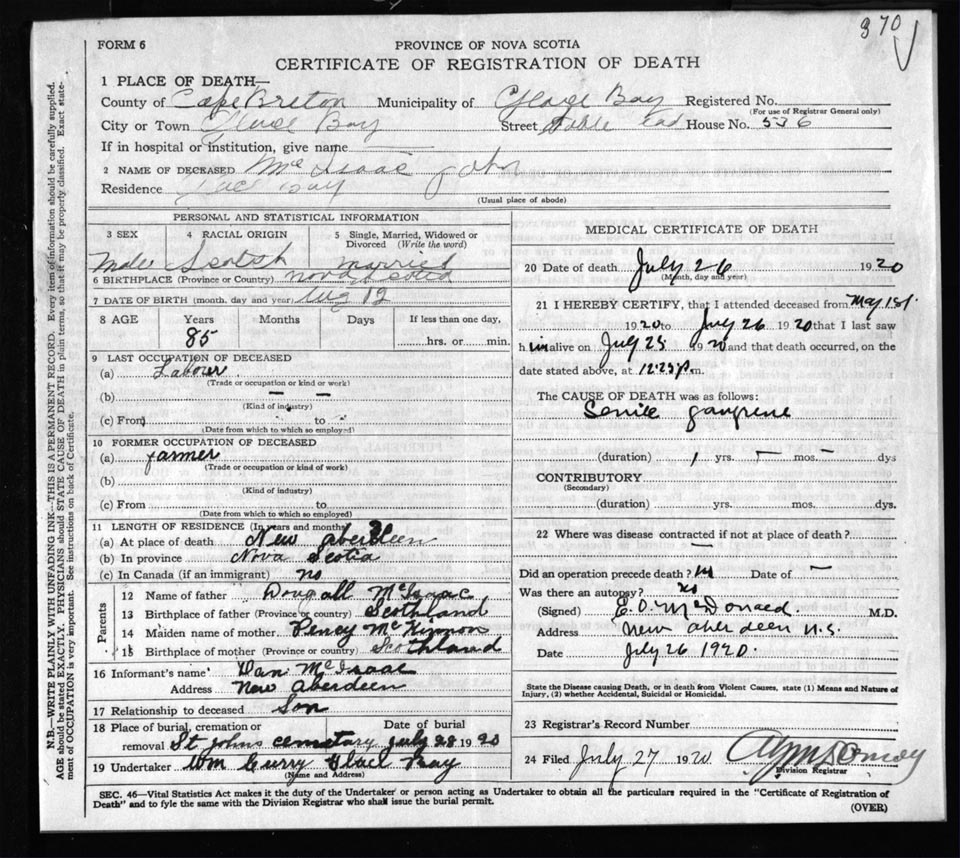 370
FORM 6
PROVINCE OF NOVA SCOTIA
CERTIFICATE OF REGISTRATION OF DEATH
1 PLACE OF DEATH—
County of Cape Breton Municipality of Glace Bay Registered No.
(For use of Registrar General only)
City or Town Glace Bay Street House No. 536
If in hospital or institution, give name
2 NAME OF DECEASED McIsaac John
Residence Glace Bay
(Usual place of abode)
PERSONAL AND STATISTICAL INFORMATION
3 SEX 4 RACIAL ORIGIN 5 Single, Married, Widowed or Divorced (Write the word)
Male Scotsh married
6 BIRTHPLACE (Province or Country) Nova Scotia
7 DATE OF BIRTH (month, day and year) Aug 12
8 AGE Years Months Days If less than one day,
85 hrs. or min.
9 LAST OCCUPATION OF DECEASED
(a) Labour
(Trade or occupation or kind or work)
(b) — —
(Kind of industry)
(c) From to
(Date from which to which so employed)
10 FORMER OCCUPATION OF DECEASED
(a) farmer
(Trade or occupation or kind of work)
(b)
(Kind of industry)
(c) From to
(Date from which to which so employed)
11 LENGTH OF RESIDENCE (In years and months)
(a) At place of death New Aberdeen
(b) In province Nova Scotia
(c) In Canada (if an immigrant) no
Parents
12 Name of father Dougall McIsaac
13 Birthplace of father (Province or country) Scothland
14 Maiden name of mother McKinnon
15 Birthplace of mother (Province or country) Scothland
16 Informant's name Dan McIsaac
Address New Aberdeen
17 Relationship to deceased Son
18 Place of burial, cremation or removal Date of burial
St Johns cemetary July 28 1920
19 Undertaker Wm Curry Glace Bay
(Name and Address)
MEDICAL CERTIFICATE OF DEATH
20 Date of death July 26 1920
(Month, day and year)
21 I HEREBY CERTIFY, that I attended deceased from May 1st.
1920 to July 26 1920 that I last saw
h im alive on July 25 1920 and that death occurred, on the
date stated above, at 12.25 p m.
The CAUSE OF DEATH was as follows:
Senile gangrene
(duration) 1 yrs. — mos. — dys
CONTRIBUTORY
(Secondary)
(duration) yrs. mos. dys.
22 Where was disease contracted if not at place of death?
—
Did an operation precede death? Date of —
Was there an autopsy? no
(Signed) E.O. McDonald M.D.
Address New Aberdeen N.S.
Date July 26 1920.
State the Disease causing Death, or in death from Violent Causes, state (1) Means and Nature of
Injury, (2) whether Accidental, Suicidal or Homicidal.
23 Registrar's Record Number
24 Filed July 27 1920
Division Registrar
SEC. 46—Vital Statistics Act makes it the duty of the Undertaker or person acting as Undertaker to obtain all the particulars required in the "Certificate of Registration of
Death" and to fyle the same with the Division Registrar who shall issue the burial permit.
(OVER)
N.B.—WRITE PLAINLY WITH UNFADING INK—THIS IS A PERMANENT RECORD. Every item of information should be carefully supplied.
AGE should be stated EXACTLY. PHYSICIANS should STATE CAUSE OF DEATH in plain terms, so that it may be properly classified. Exact state-
ment of OCCUPATION is very important. See instructions on back of Certificate.